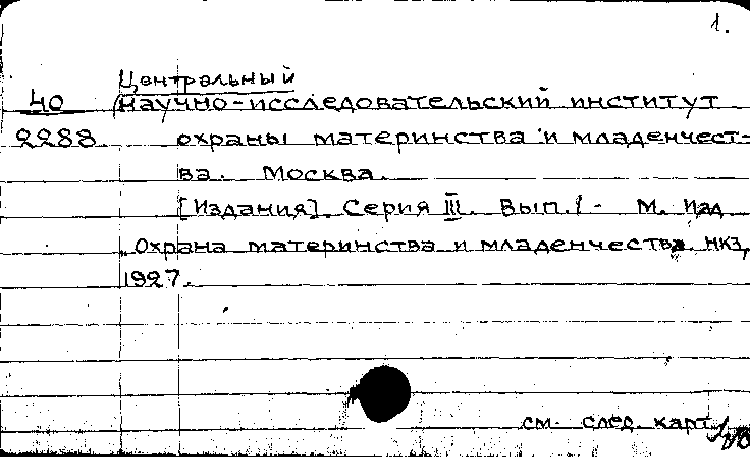 1.
Центральный
40 научно-исследовательский институт
2288 охраны материнства и младенчест-
ва. Москва.
[Издания]. Серия III. Вып. 1 - М. Изд.
"Охрана материнства и младенчества. НКЗ,
1927.
см. след. карт.